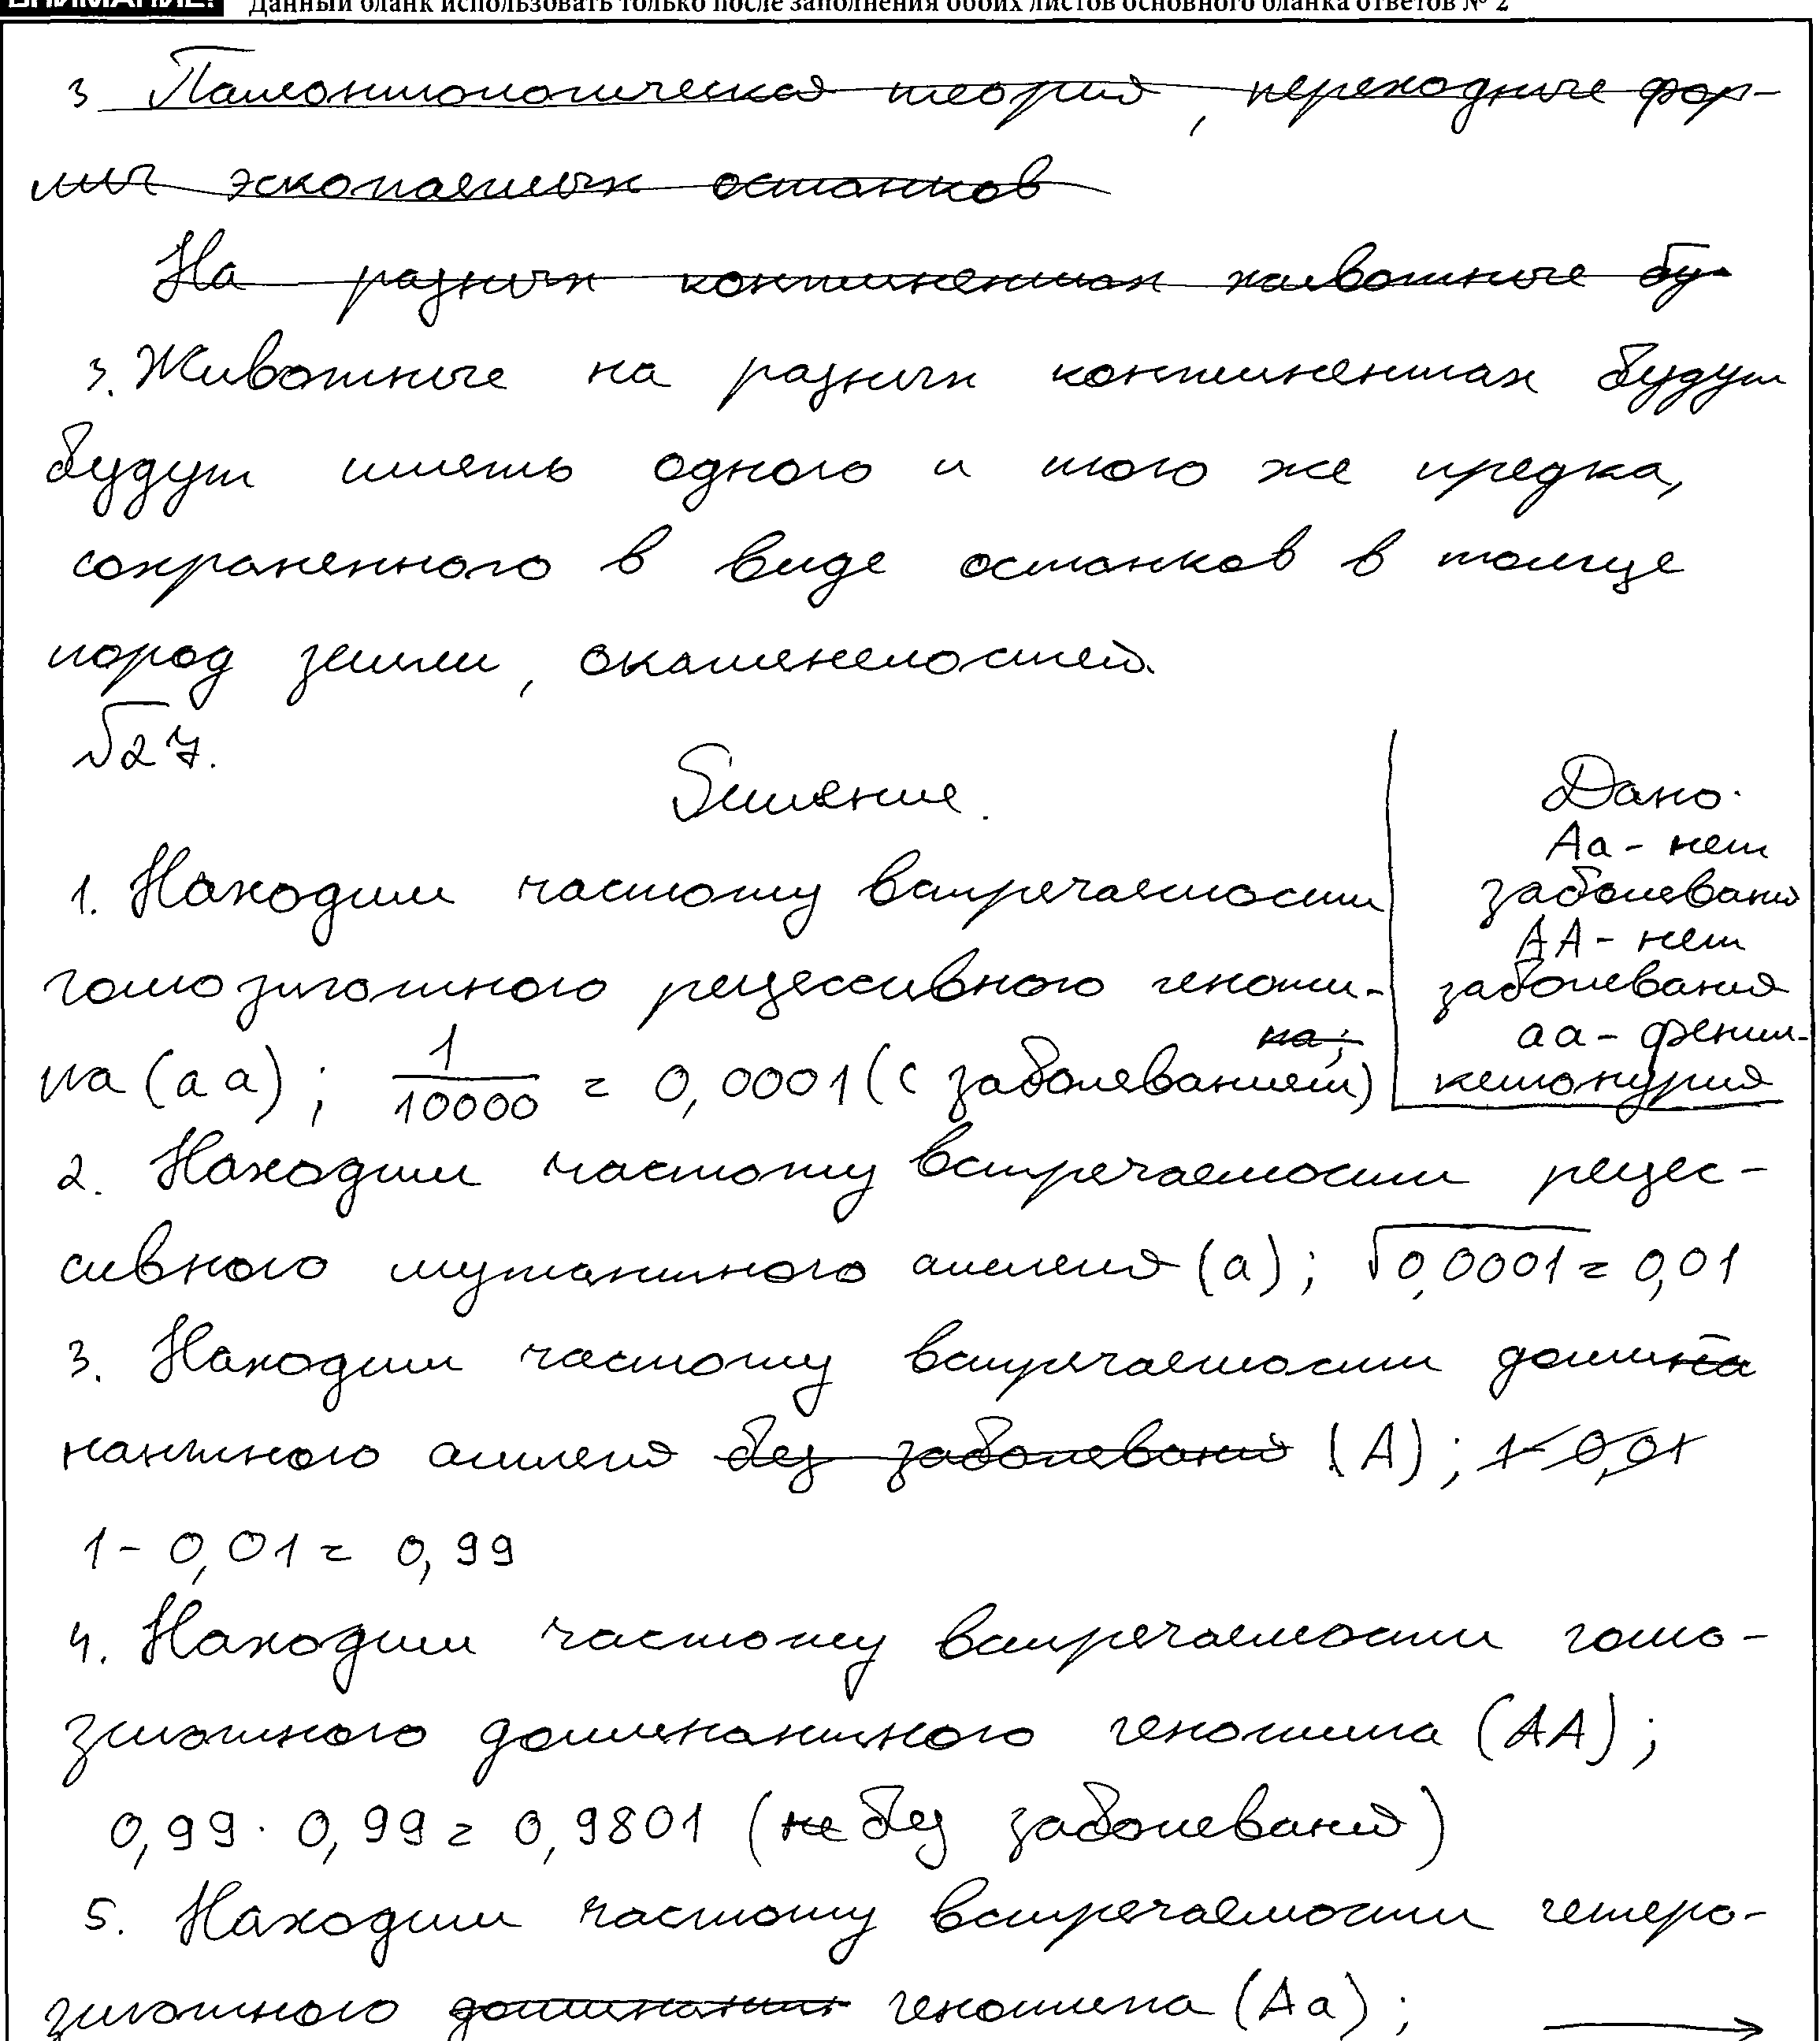 ВНИМАНИЕ! Данный бланк использовать только после заполнения обоих листов основного бланка ответов № 2
3 Палеонтологическая теория, переходные фор-
мы эскопаемых останков
На разных континентах животные бу-
3. Животные на разных континентах будут
будут иметь одного и того же предка,
сохраненного в виде останков в толще
пород земли, окаменелостей.
№27.
Решение.
Дано:
Aa - нет
заболевания
AA - нет
заболевания
aa - фенил-
кетонурия
1. Находим частоту встречаемости
гомозиготного рецессивного геноти-
па;
па (aa); 1/10000 = 0,0001 (с заболеванием)
2. Находим частоту встречаемости рецес-
сивного мутантного аллеля (a); √0,0001 = 0,01
3. Находим частоту встречаемости домина
нантного аллеля без заболевания (A); 1-0,01
1 - 0,01 = 0,99
4. Находим частоту встречаемости гомо-
зиготного доминантного генотипа (AA);
0,99 · 0,99 = 0,9801 (не без заболевания)
5. Находим частоту встречаемости гетеро-
зиготного доминант генотипа (Aa);